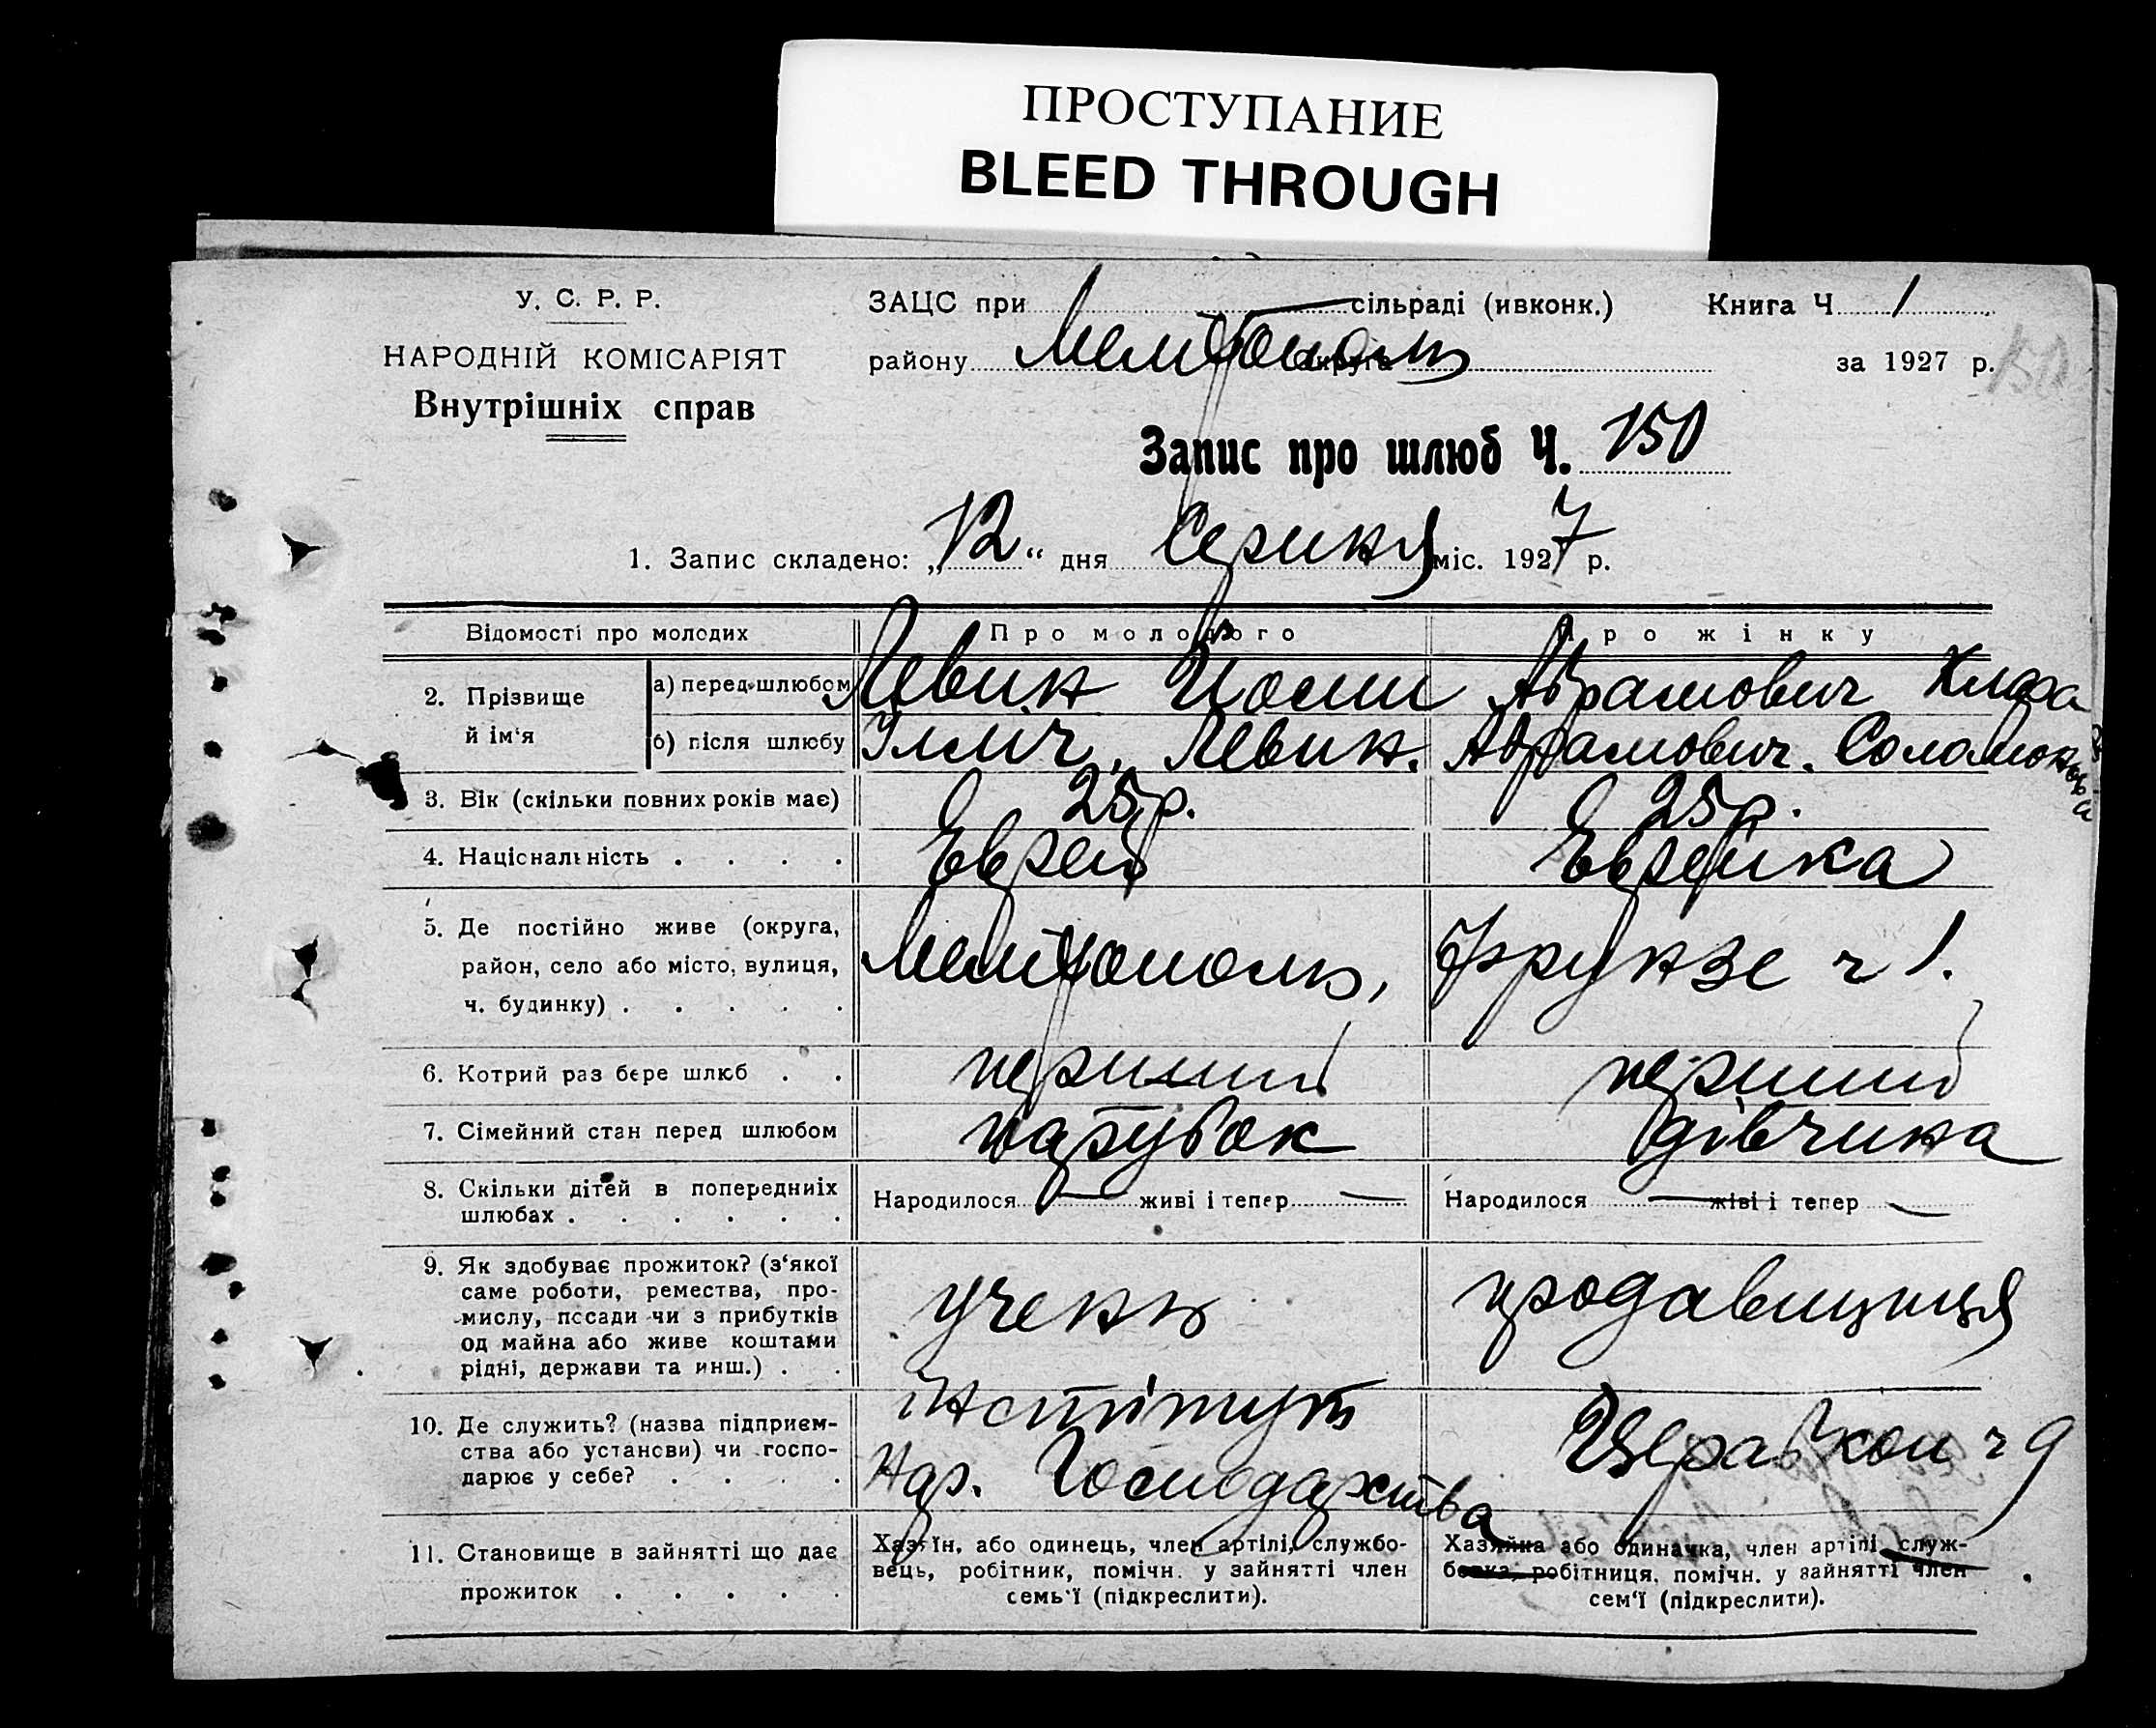 ПРОСТУПАНИЕ
BLEED THROUGH
У. С. Р. Р.
НАРОДНІЙ КОМІСАРІЯТ
Внутрішніх справ
ЗАЦС при сільраді (ивконк.) Книга Ч. 1
району Мелітополь округи за 1927 р.
150
Запис про шлюб Ч. 150
1. Запис складено: „12“ дня Серпня міс. 1927 р.
Відомості про молодих Про молодого Про жінку
2. Прізвище й ім'я
а) перед шлюбом Левин Йосип Абрамович Клара
б) після шлюбу Ілліч, Левин. Абрамович. Соломоновна
3. Вік (скільки повних років має) 25 р. 25 р.
4. Національність . . . . Еврей Еврейка
5. Де постійно живе (округа,
район, село або місто, вулиця, Мелітополь, Фрунзе ч 1.
ч. будинку) . . . . .
6. Котрий раз бере шлюб . . перший перший
7. Сімейний стан перед шлюбом парубок дівчина
8. Скільки дітей в попередниіх Народилося — живі і тепер — Народилося — жіві і тепер —
шлюбах . . . . . .
9. Як здобуває прожиток? (з'якої
саме роботи, ремества, про-
мислу, посади чи з прибутків учень продавщиця
од майна або живе коштами
рідні, держави та инш.) . .
10. Де служить? (назва підприєм- інстітут
ства або установи) чи госпо- Нар. Господарства Церабкоп ч 9
дарює у себе? . . . .
11. Становище в зайнятті що дає
прожиток . . . . .
Хазяїн, або одинець, член артілі, службо-
вець, робітник, помічн. у зайнятті член
семь'ї (підкреслити).
Хазяйка або одиначка, член артілі, служ-
бовка, робітниця, помічн. у зайнятті член
сем'ї (підкреслити).